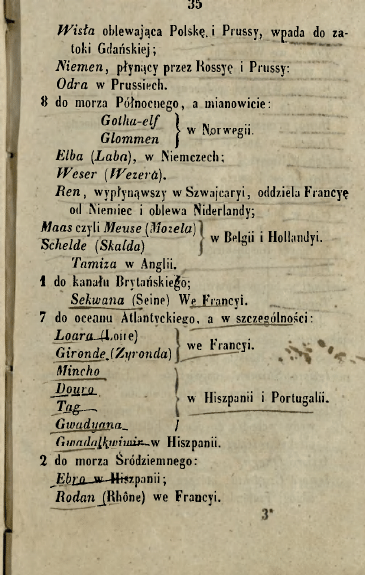 35
Wisła oblewająca Polskę i Prussy, wpada do za-
toki Gdańskiej;
Niemen, płynący przez Rossyę i Prussy:
Odra w Prussiech.
8 do morza Północnego, a mianowicie:
Gotha-elf
Glommen } w Norwegii.
Elba (Laba), w Niemczech;
Weser (Wezera).
Ren, wypłynąwszy w Szwajcaryi, oddziela Francyę
od Niemiec i oblewa Niderlandy;
Maas czyli Meuse (Mozela)
Schelde (Skalda) } w Belgii i Hollandyi.
Tamiza w Anglii.
1 do kanału Brytańskiego;
Sekwana (Seine) We Francyi.
7 do oceanu Atlantyckiego, a w szczególności:
Loara (Loire)
Gironde (Zyronda) } we Francyi.
Mincho
Douro
Tag
Gwadyana } w Hiszpanii i Portugalii.
Gwadalkwiwir w Hiszpanii.
2 do morza Śródziemnego:
Ebro w Hiszpanii;
Rodan (Rhône) we Francyi.
3*